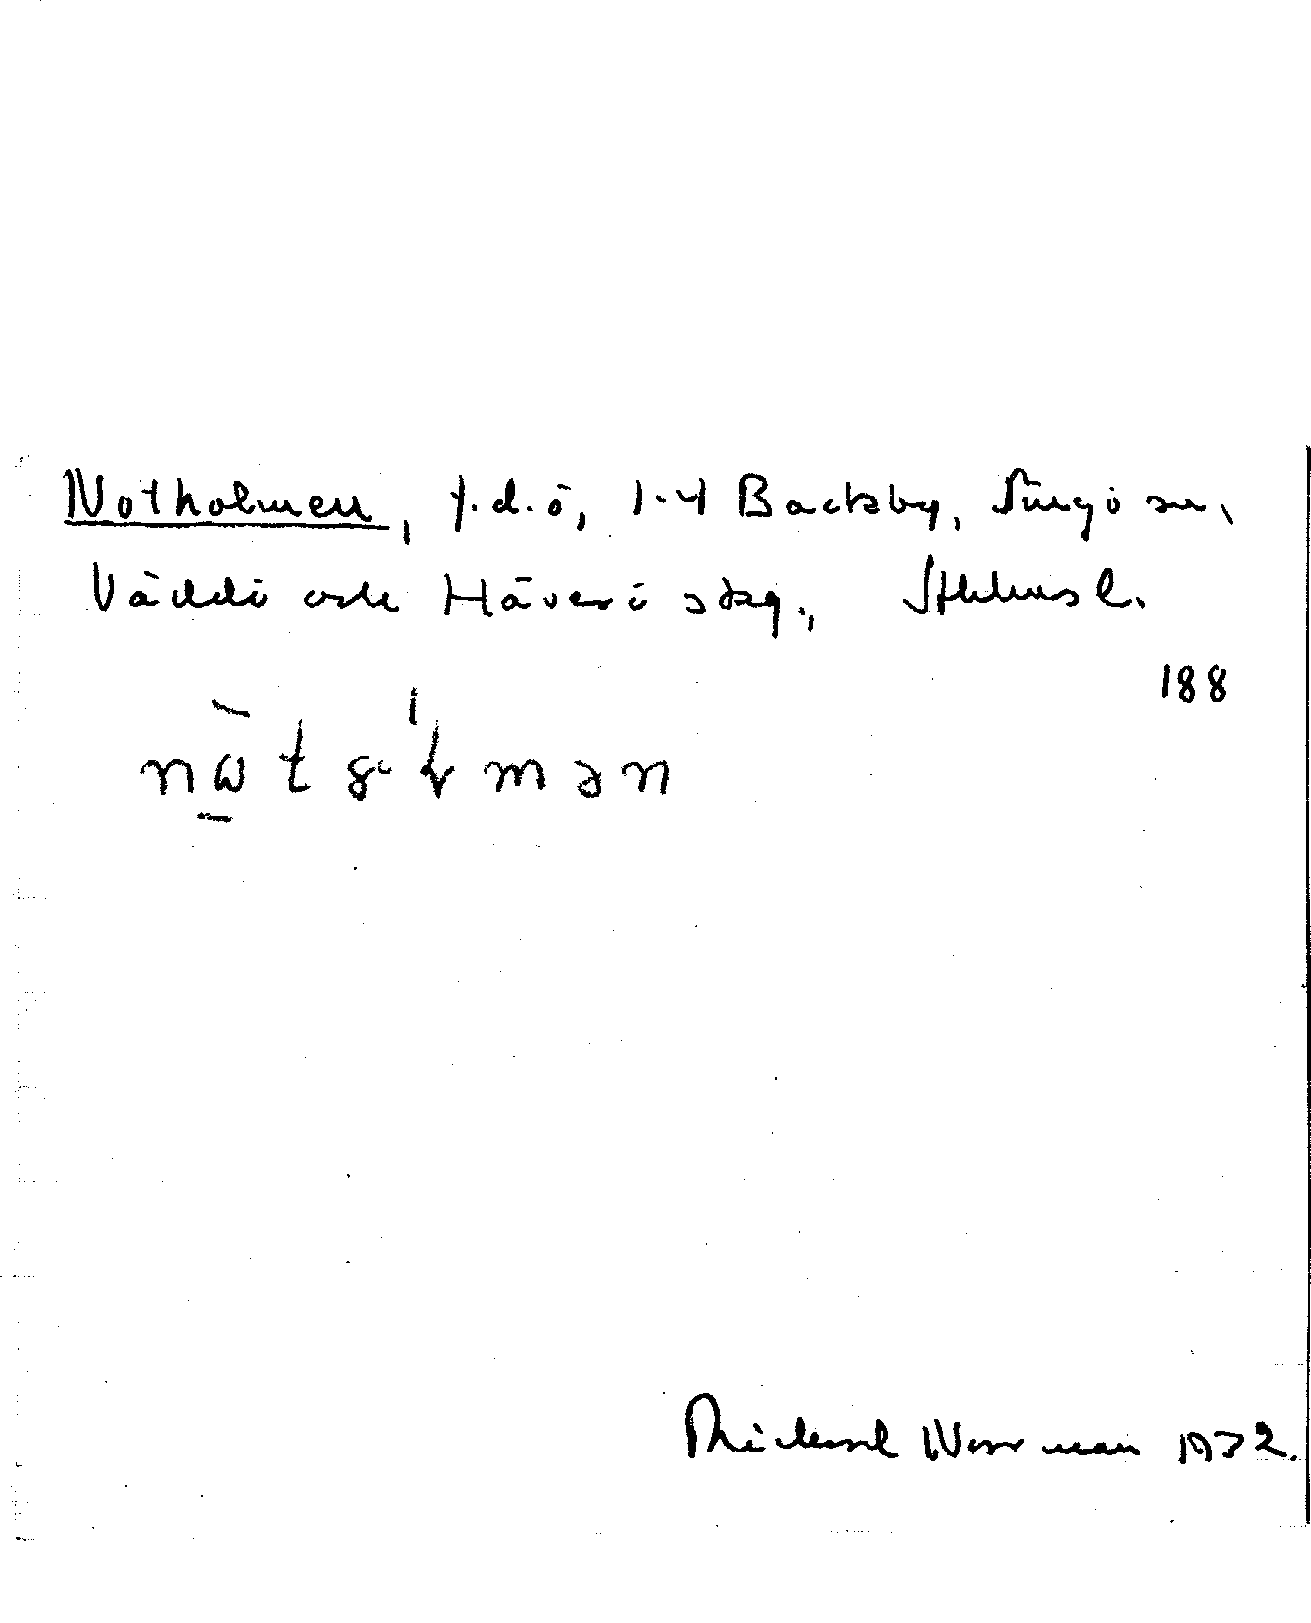 Notholmen, f.d.ö, 1-4 Backby, Singö sn,
Väddö och Häverö skg., Sthlmsl.
188
Rickard Norrman 1932.